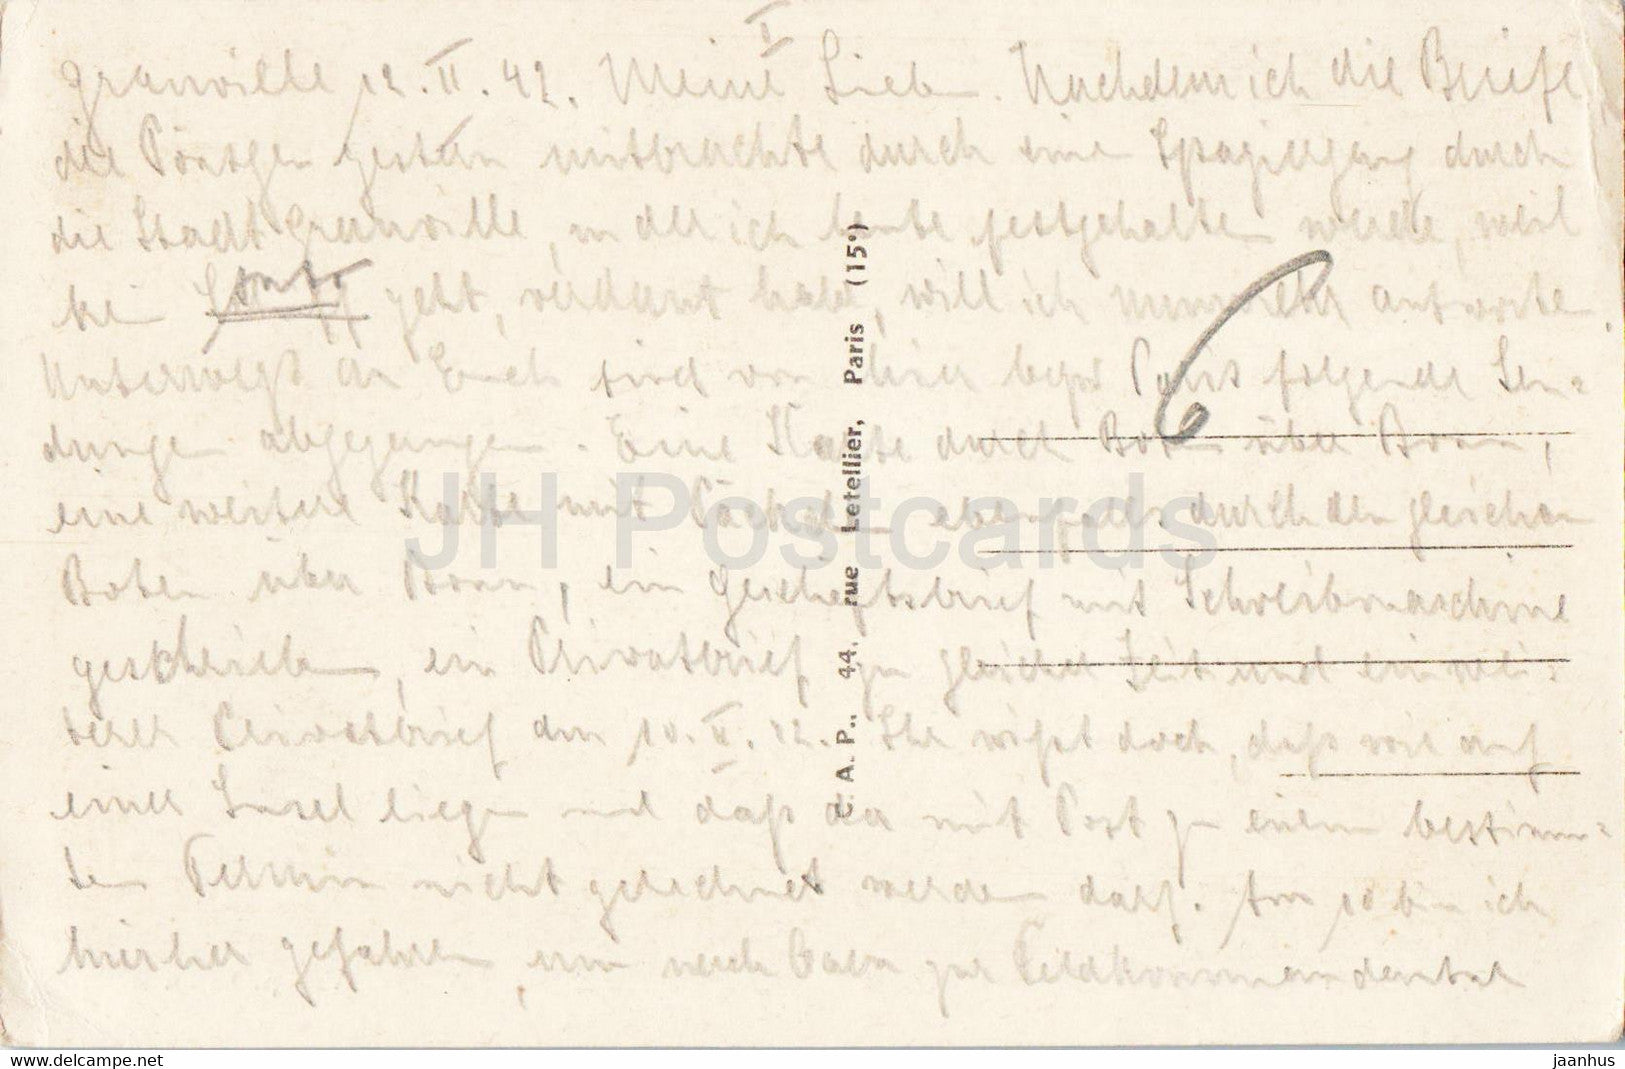 I
Granville 12. II. 42. Meine Lieben. Nachdem ich die Briefe,
die Pöntgen gestern mitbrachte durch eine Spaziergang durch
die Stadt Granville, in der ich heute festgehalten werde, weil
kein geht, verdaut habe, will ich nunmehr antworten.
Unterwegs an Euch sind von hier bezw Paris folgende Sen=
dungen abgegangen. Eine Karte durch Boten über Bonn,
eine weitere Karte mit Päckchen ebenfalls durch den gleichen
Boten über Bonn, ein Geschäftsbrief mit Schreibmaschine
geschrieben, ein Privatbrief zu gleicher Zeit und ein wei=
terer Privatbrief am 10. II. 42. Ihr wißt doch, daß wir auf
einer Insel liegen und daß da mit Post zu einem bestimm=
ten Termin nicht gerechnet werden darf. Am 10 bin ich
hierher gefahren, um nach Caen zur Feldkommandantur
6
C. A. P., 44, rue Letellier, Paris (15e)
JH Postcards
delcampe.net
jaanhus